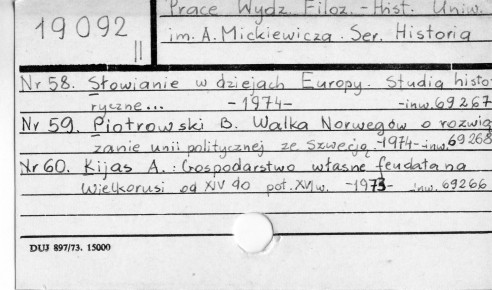 19092
II
Prace Wydz. Filoz.-Hist. Uniw.
im. A. Mickiewicza. Ser. Historia
Nr 58. Słowianie w dziejach Europy. Studia histo
ryczne... -1974- -inw.69267
Nr 59. Piotrowski B. Walka Norwegów o rozwią
zanie unii politycznej ze Szwecją. -1974-inw.69268
Nr 60. Kijas A.: Gospodarstwo własne feudała na
Wielkorusi od XIV do poł. XVI w. -1973- inw. 69266
DUJ 897/73. 15000